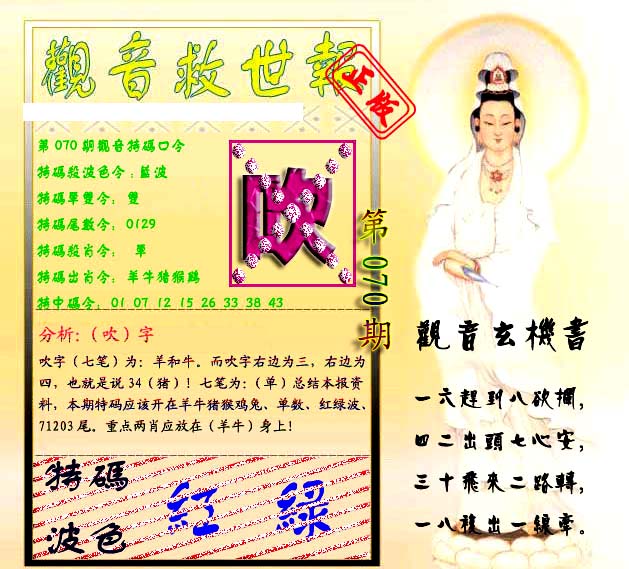 觀音救世報
正版
第070期觀音特碼口令
特碼殺波色令：藍波
特碼單雙令： 雙
特碼尾數令： 0129
特碼殺肖令： 單
特碼出肖令： 羊牛猪猴鷄
特中碼令： 01 07 12 15 26 33 38 43
吹
第070期
分析:（吹）字
吹字（七笔）为：羊和牛。而吹字右边为三，右边为
四，也就是说 34（猪）！七笔为：（单）总结本报资
料，本期特码应该开在羊牛猪猴鸡兔、单数、红绿波、
71203 尾。重点两肖应放在（羊牛）身上！
特碼
波色
紅 綠
觀音玄機書
一六趕到八欲攔，
四二出頭七心安，
三十飛來二路轉，
一八複出一線牽。